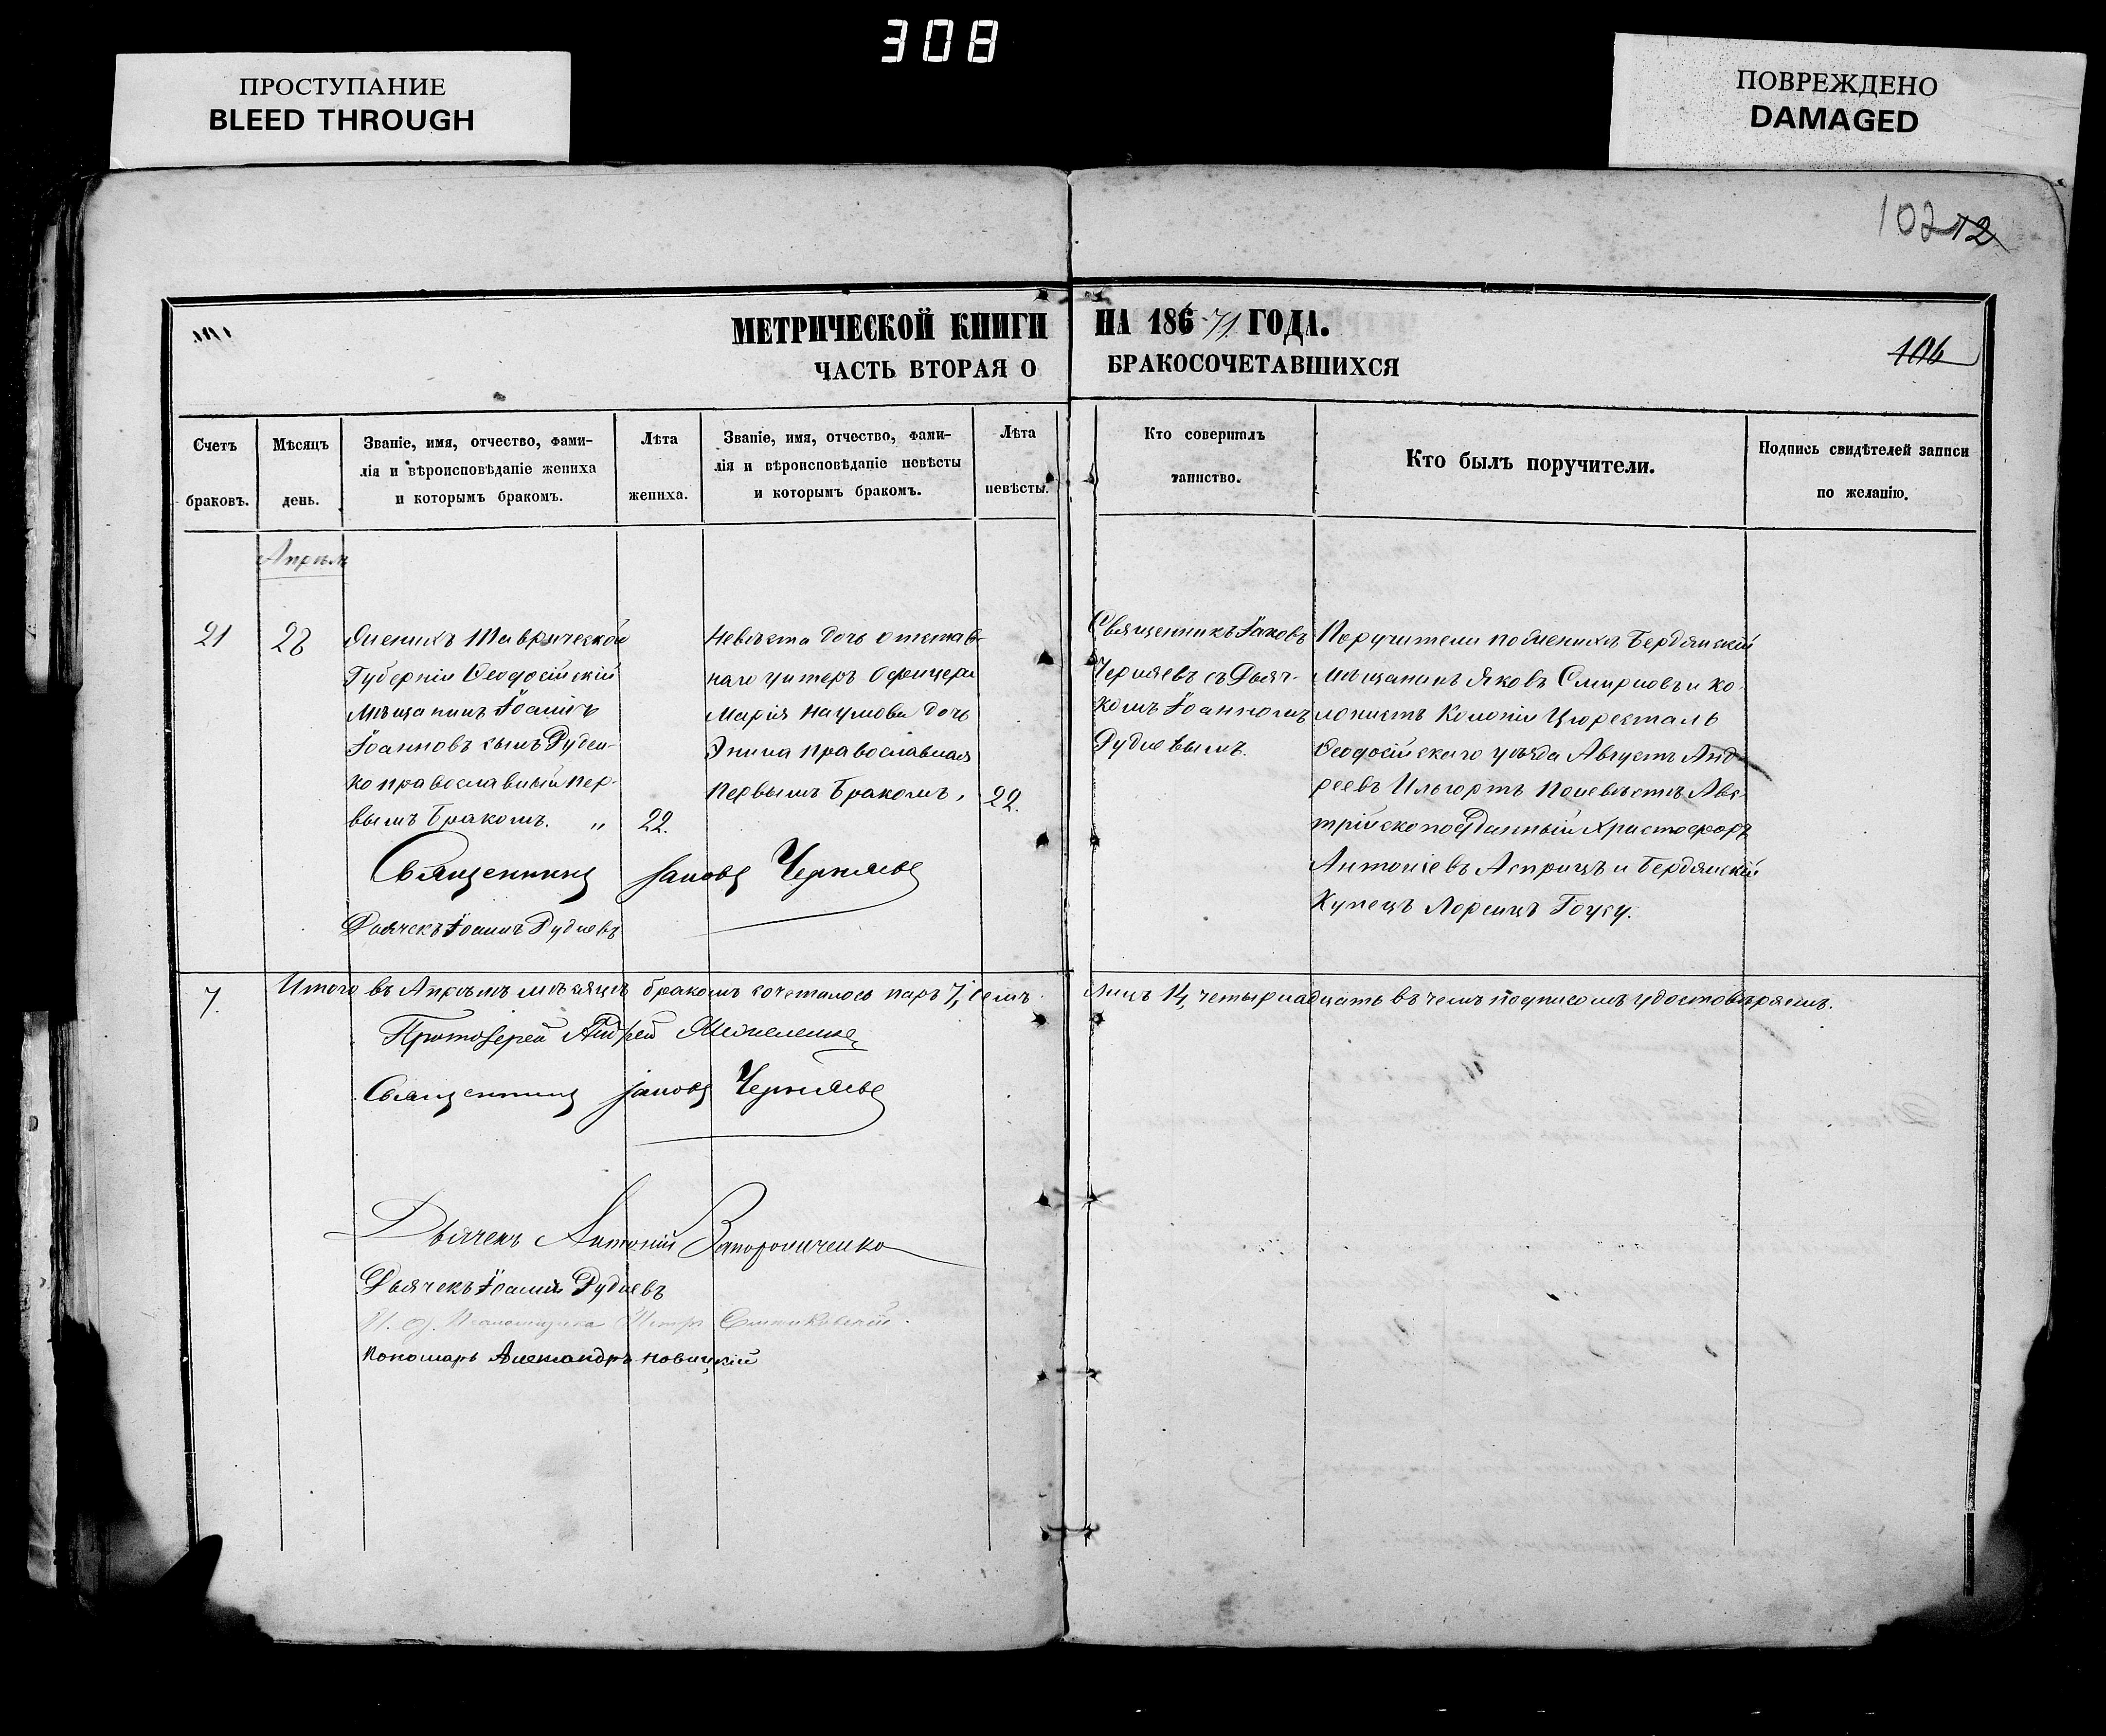 308
ПРОСТУПАНИЕ
BLEED THROUGH
ПОВРЕЖДЕНО
DAMAGED
102 12
МЕТРИЧЕСКОЙ КНИГИ НА 186 71 ГОДА.
ЧАСТЬ ВТОРАЯ О БРАКОСОЧЕТАВШИХСЯ
106
Счетъ
браковъ.
Мѣсяцъ
день.
Званіе, имя, отчество, фами-
лія и вѣроисповѣданіе жениха
и которымъ бракомъ.
Лѣта
жениха.
Званіе, имя, отчество, фами-
лія и вѣроисповѣданіе невѣсты
и которымъ бракомъ.
Лѣта
невѣсты.
Кто совершалъ
таинство.
Кто былъ поручители.
Подпись свидѣтелей записи
по желанію.
Апрѣль
21
28
Женихъ Таврической
Губерніи Ѳеодосійскій
мѣщанинъ Іоаннъ
Іоанновъ сынъ Руден-
ко православный пер-
вымъ бракомъ. „
22.
Невѣста дочь отстав-
наго унтеръ Офицера
Марія Наумова дочь
православная
первымъ бракомъ,
22.
Священникъ Іаковъ
Черняевъ съ Дьяч-
комъ Іоанномъ
Рудневымъ.
Поручители по женихѣ Бердянскій
мѣщанинъ Яковъ Смирновъ и ко-
лонистъ Колоніи Цюрехталь
Ѳеодосійскаго уѣзда Августъ Анд-
реевъ по невѣстѣ Авс-
трійско подданный Христофоръ
Антоніевъ и Бердянскій
Купецъ Лоренцъ
Священникъ Іаковъ Черняевъ
Дьячекъ Іоаннъ Рудневъ
7.
Итого въ Апрѣлѣ мѣсяцѣ бракомъ сочеталось паръ 7, семь лицъ 14, четырнадцать въ чемъ подписомъ удостовѣряемъ.
Протоіерей Андрей
Священникъ Іаковъ Черняевъ
Дьячекъ Антоній Запорожченко
Дьячекъ Іоаннъ Рудневъ
И. д. Псаломщика Петръ
Пономарь Александръ Новицкій